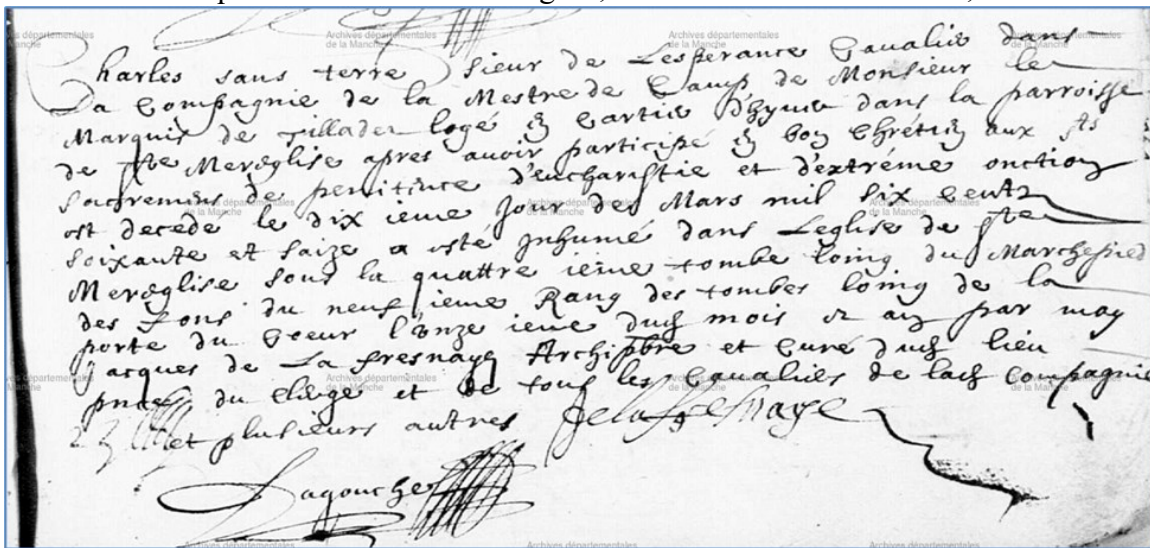 Charles sans terre sieur de Lesperance Cavalie dans
La Compagnie de la Mestre de Camp de Monsieur le
Marquis de Tillader logé en cartie dhyver dans la parroisse
de Ste Mereglise apres avoir participé en bon Chrétien aux Sts
sacremens de penitence d'eucharistie et d'extréme onction
est decédé le dix ieme Jour des Mars mil six cents
soixante et saize a esté Inhumé dans Leglise de Ste
Mereglise sous la quattre ieme tombe loing du Marchepied
des fons du neuf ieme Rang des tombes loing de la
porte du Coeur l'onze ieme dud mois et an par moy
Jacques de La fresnaye Archipbre et Curé dud lieu
pnce du Clergé et de tous les Cavaliés de lad Compagnie
et plusieurs autres Delafresnaye
Lagouche
Archives départementales
de la Manche